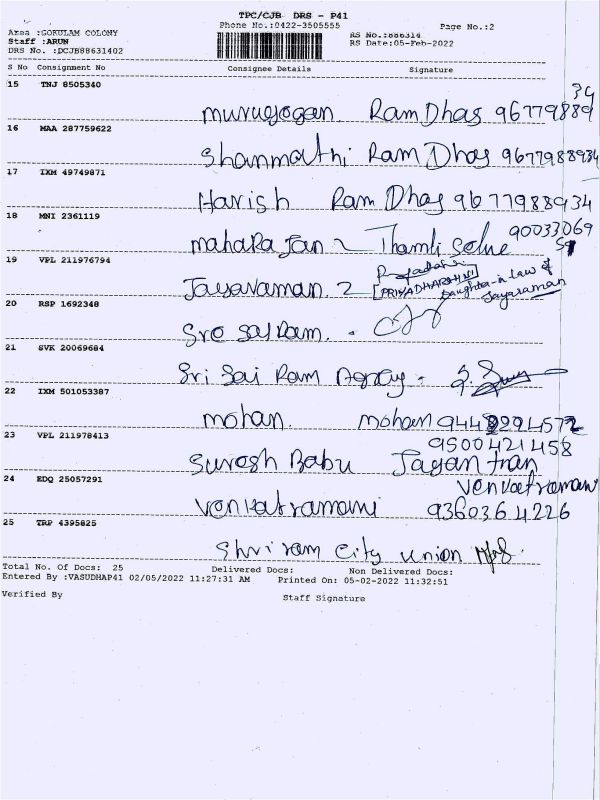 TPC/CJB DRS - P41
Phone No.:0422-3505555
Page No.:2
Area :GOKULAM COLONY
Staff :ARUN
DRS No. :DCJB88631402
RS No.:886314
RS Date:05-Feb-2022
S No Consignment No Consignee Details Signature
15 TNJ 8505340
murugogan. Ram Dhas 9677988934
16 MAA 287759622
Shanmathi Ram Dhas 9677988934
17 IXM 49749871
Harish Ram Dhas 9677988934
18 MNI 2361119
mahaRajan 90033069
19 VPL 211976794
Jayaraman. [PRIYADHARSHINI] Daughter-in law of Jayaraman
20 RSP 1692348
Sre Sai Ram.
21 SVK 20069684
Sri Sai Ram Agency -
22 IXM 501053387
mohan. mohan
23 VPL 211978413
9500421458
Suresh Babu
24 EDQ 25057291
Venkatraman
Venkatramani 9360364226
25 TRP 4395825
Shriram City Union
Total No. Of Docs: 25 Delivered Docs: Non Delivered Docs:
Entered By :VASUDHAP41 02/05/2022 11:27:31 AM Printed On: 05-02-2022 11:32:51
Verified By Staff Signature